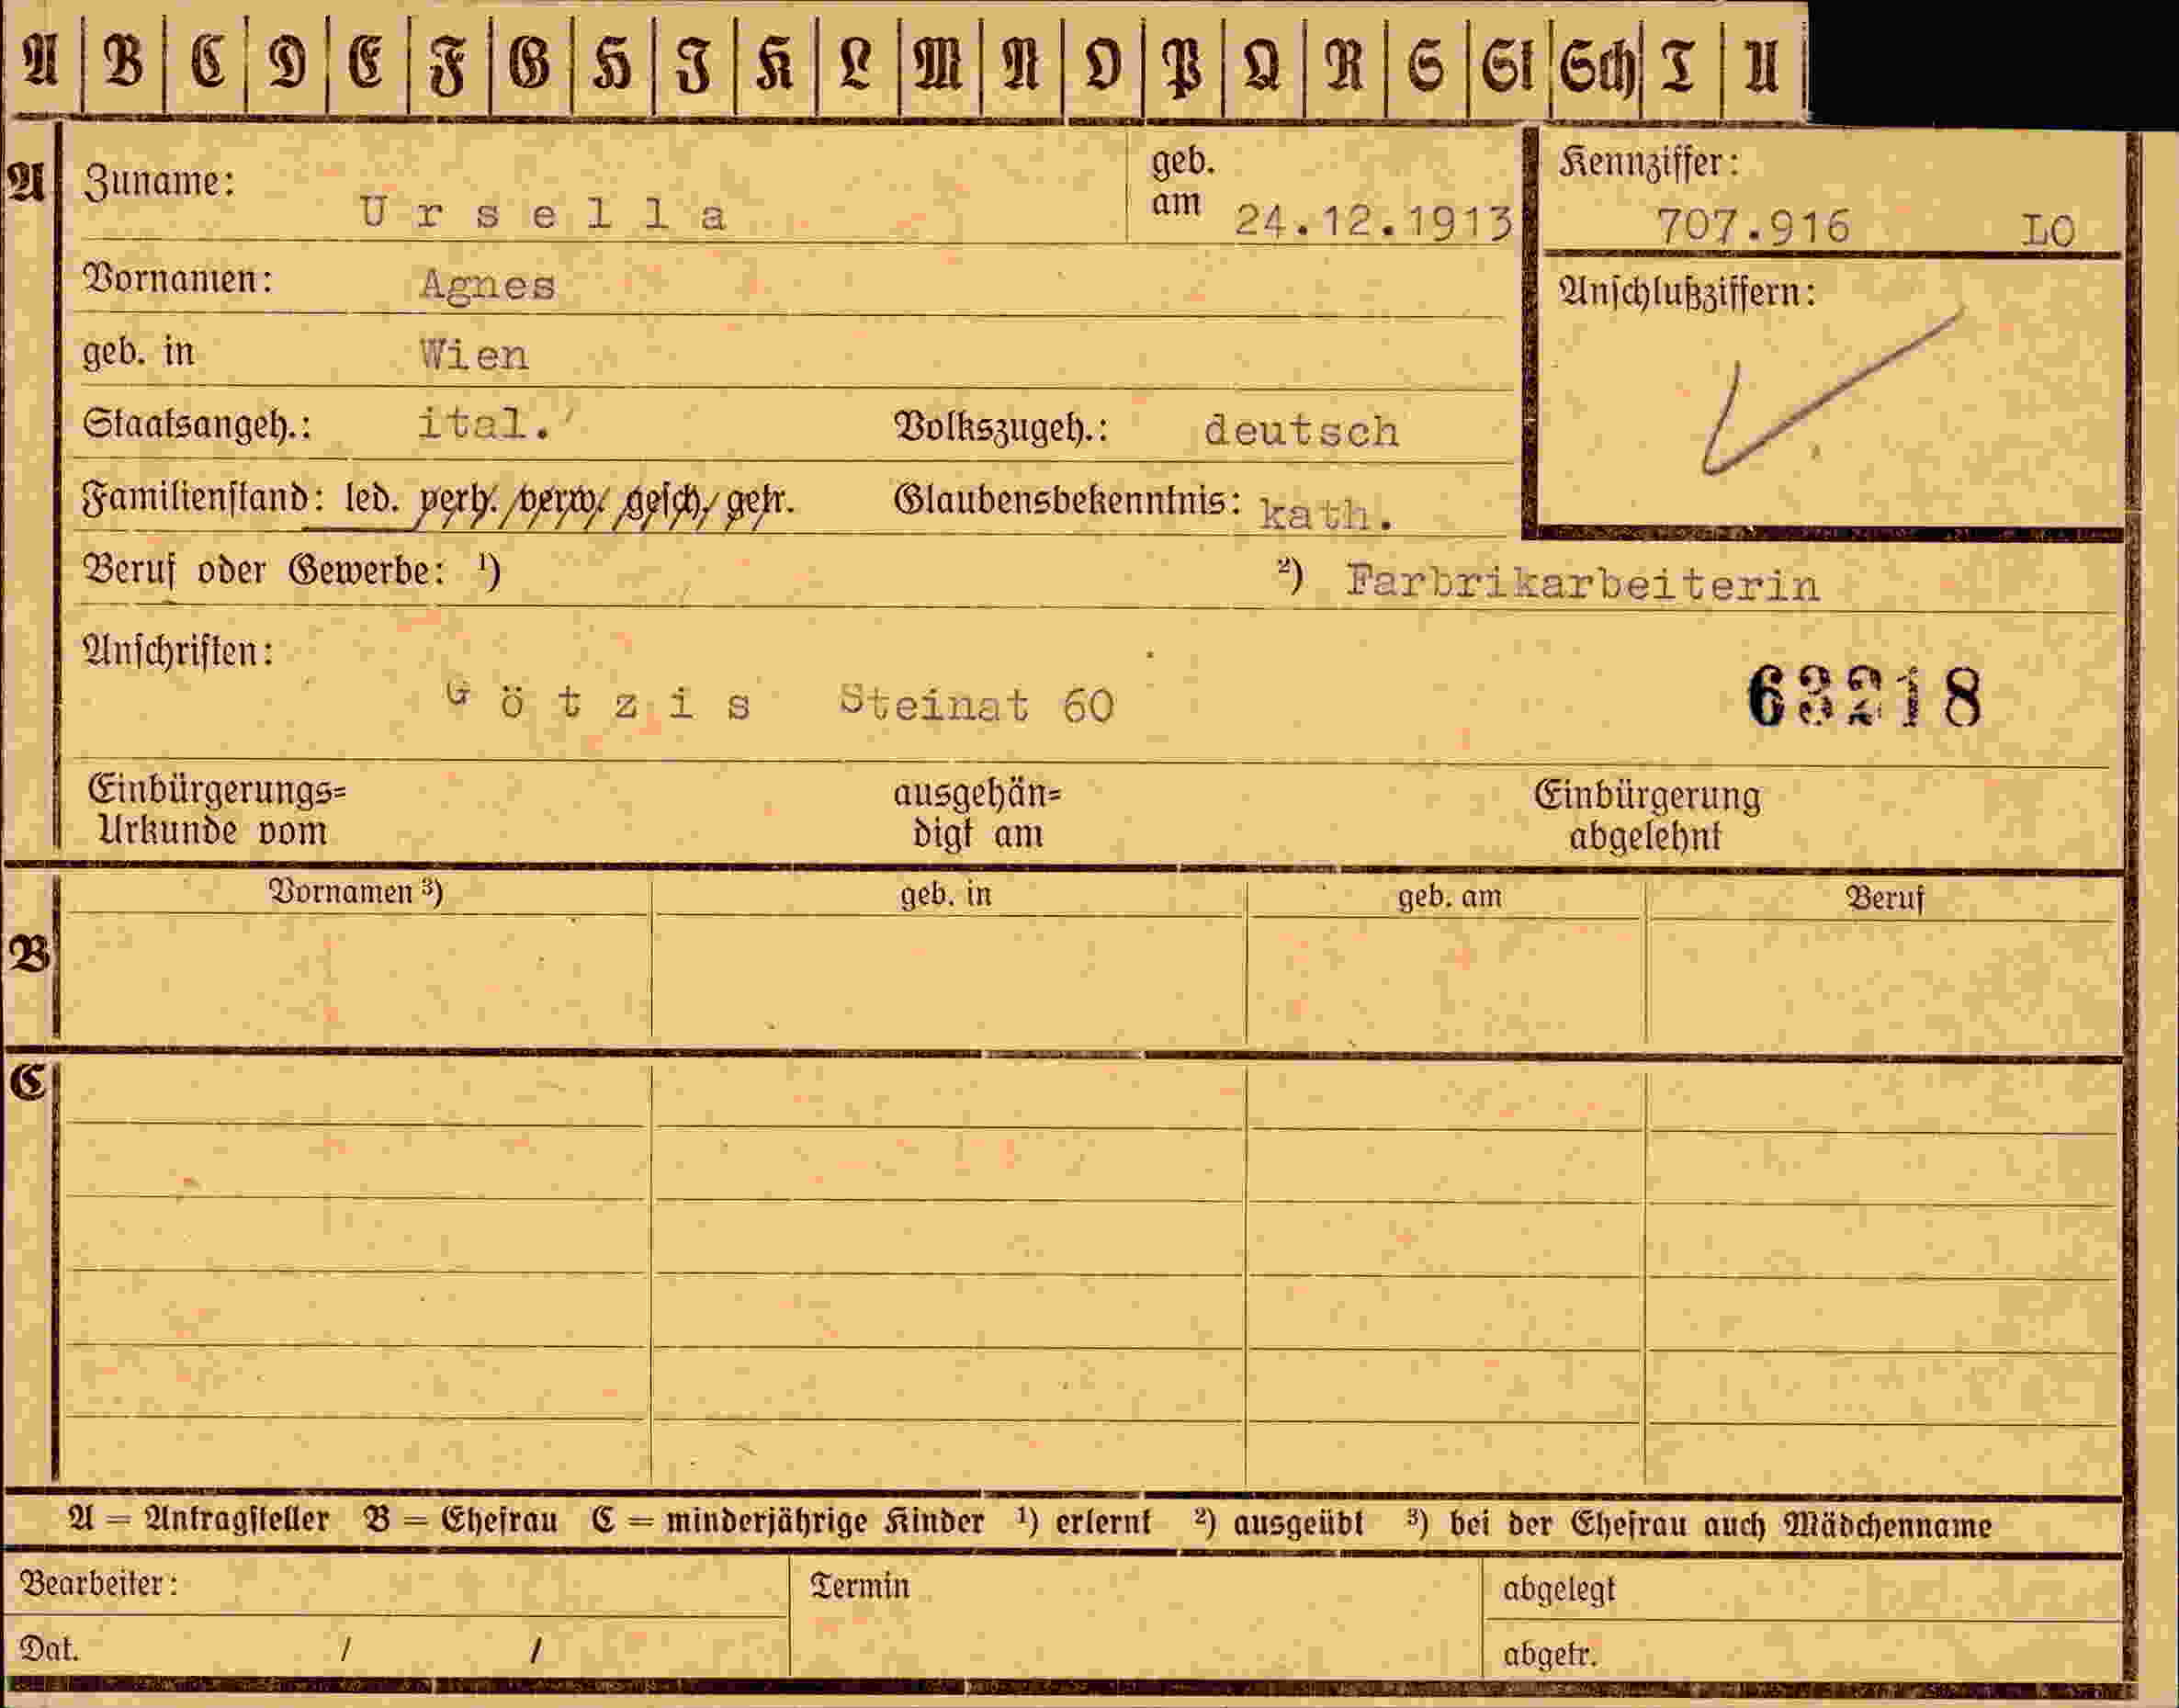 A B C D E F G H I K L M N O P Q R S St Sch T U
A Zuname: Ursella geb. am 24.12.1913 Kennziffer: 707.916 LO
Vornamen: Agnes Anschlußziffern:
geb. in Wien
Staatsangeh.: ital. Volkszugeh.: deutsch
Familienstand: led. verh. verw. gesch. getr. Glaubensbekenntnis: kath.
Beruf oder Gewerbe: ¹) ²) Farbrikarbeiterin
Anschriften:
Götzis Steinat 60 63218
Einbürgerungs= ausgehän= Einbürgerung
Urkunde vom digt am abgelehnt
Vornamen ³) geb. in geb. am Beruf
B
C
A = Antragsteller B = Ehefrau C = minderjährige Kinder ¹) erlernt ²) ausgeübt ³) bei der Ehefrau auch Mädchenname
Bearbeiter: Termin abgelegt
Dat. / / abgetr.